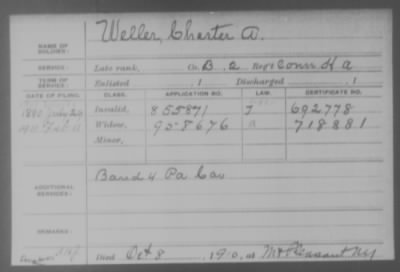 NAME OF SOLDIER:
Weller, Chester A.
SERVICE:
Late rank, Co. B, 2 Reg't Conn H A
TERM OF SERVICE:
Enlisted , 1 Discharged , 1
DATE OF FILING. CLASS. APPLICATION NO. LAW. CERTIFICATE NO.
1890 July 29 Invalid, 855871 J 692778
Widow, 958676 a 718881
Minor,
ADDITIONAL SERVICES:
Band 4 Pa Cav
REMARKS:
Died Oct 8 1910, at Mt Pleasant NY